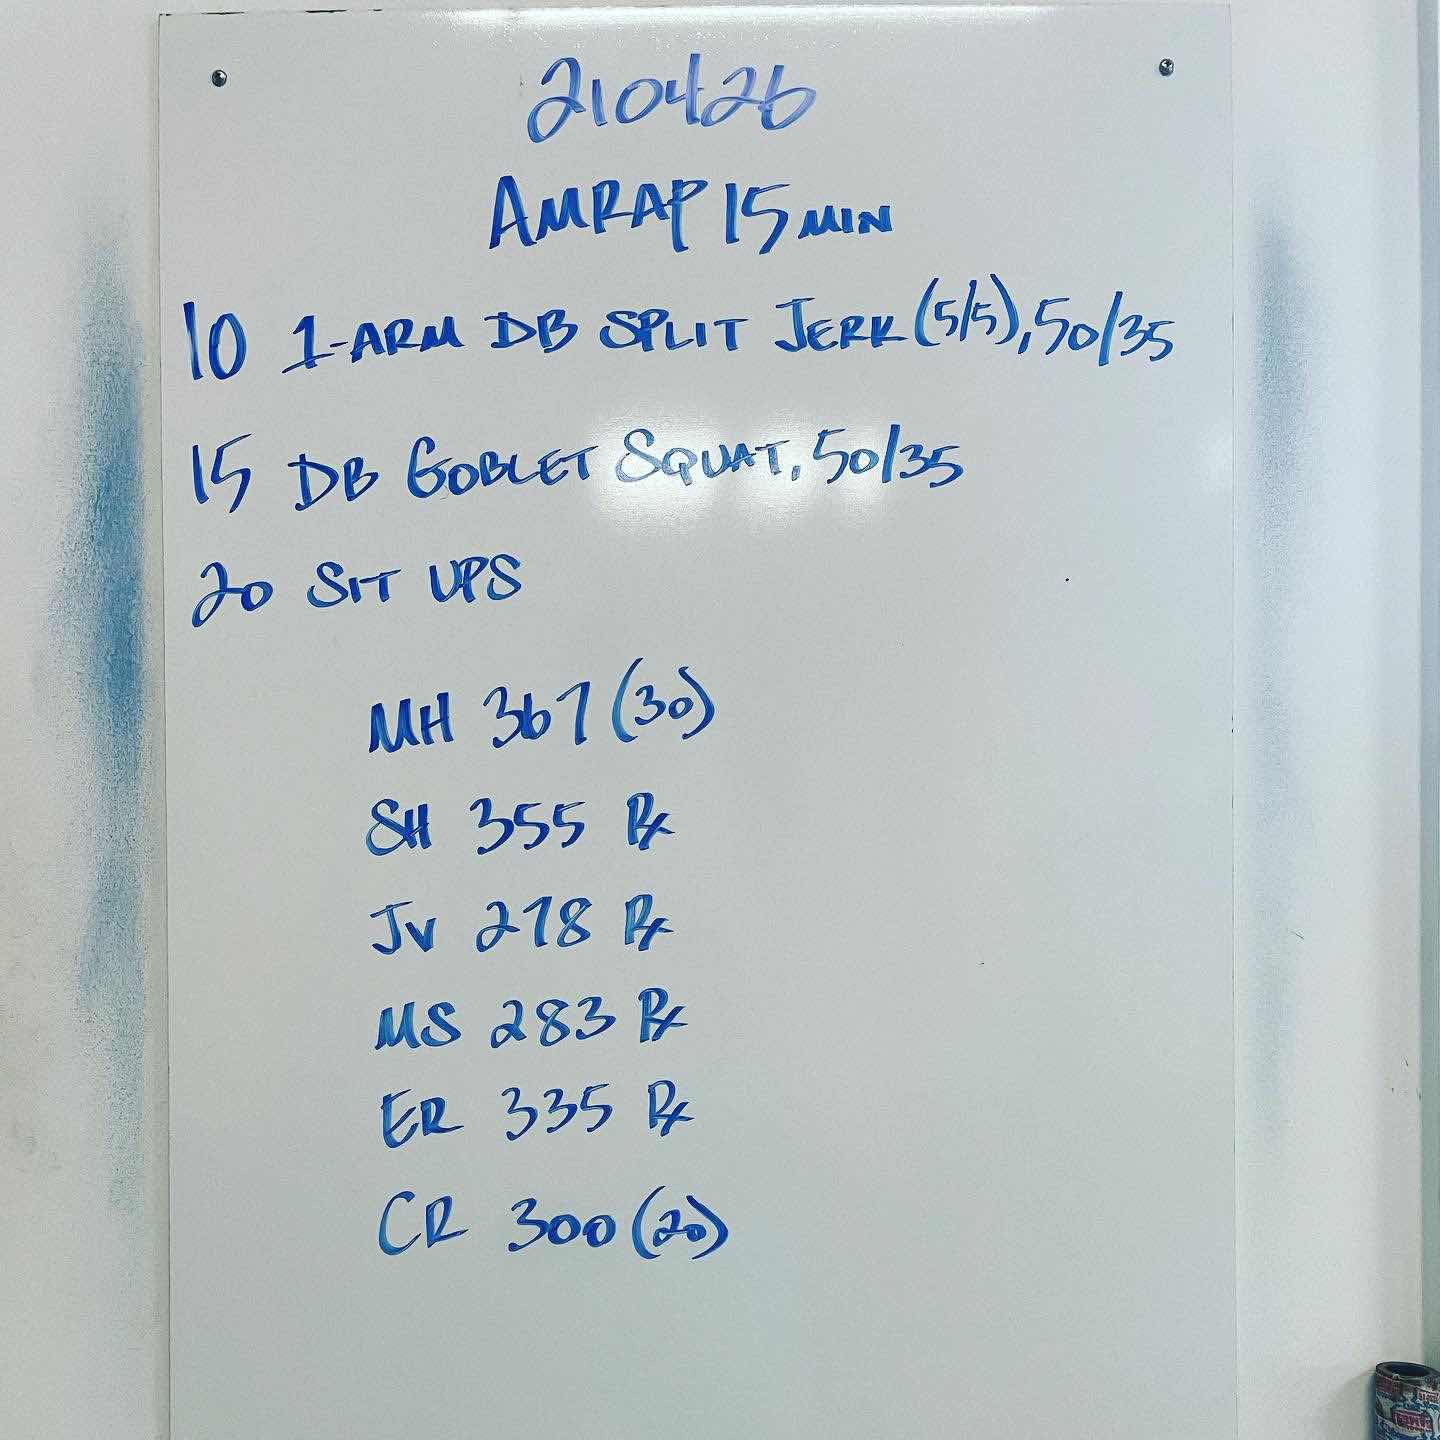 210426
AMRAP 15 MIN
10 1-ARM DB SPLIT JERK (5/5), 50/35
15 DB GOBLET SQUAT, 50/35
20 SIT UPS
MH 367 (30)
SH 355 Rx
JV 278 Rx
MS 283 Rx
ER 335 Rx
CR 300 (20)